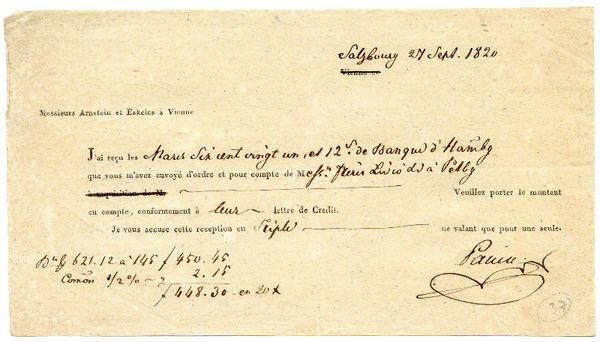 Salzbourg 27 Sept. 1820
Vienne ce
Messieurs Arnstein et Eskeles à Vienne
J'ai reçu les Marcs Six cent vingt un, et 12 s. de Banque d'Hambg
que vous m'avez envoyé d'ordre et pour compte de Mess. Livio à Petbg
à réquisition de M. Veuillez porter le montant
en compte, conformément à leur lettre de Credit.
Je vous accuse cette reception en Triple ne valant que pour une seule.
621.12 à 145 f 450.45
1/2 % 2.15
f 448.30 en 20 x
Panin
27